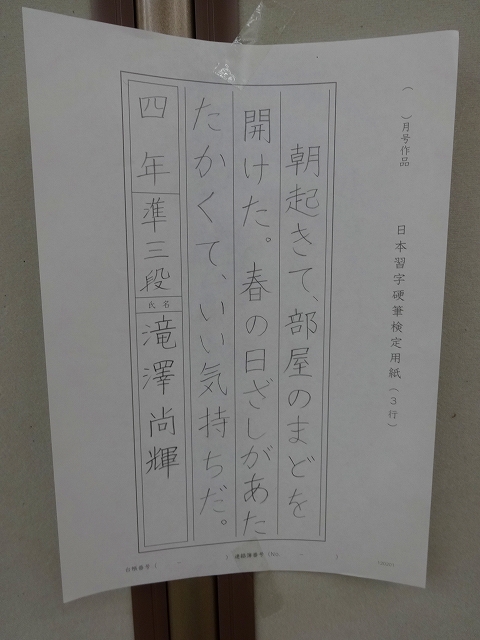 ( )月号作品
日本習字硬筆検定用紙(3行)
朝起きて、部屋のまどを
開けた。春の日ざしがあた
たかくて、いい気持ちだ。
四年 準三段 氏名 滝澤尚輝